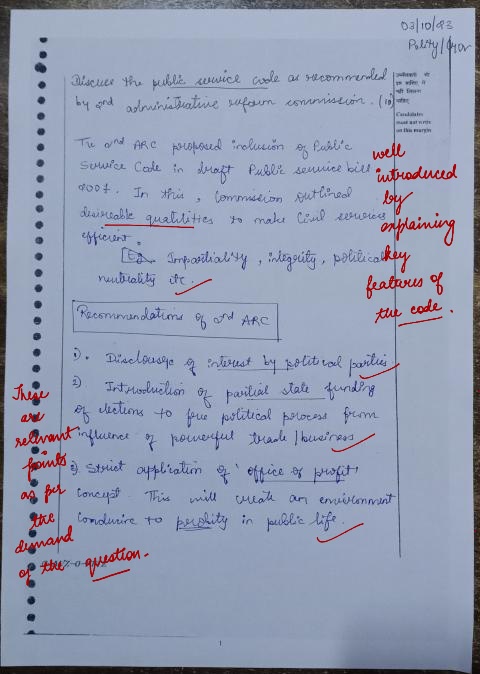 03/10/23
Polity/Gov
उम्मीदवारों को
इस हाशिए में
नहीं लिखना
चाहिए
Candidates
must not write
on this margin
Discuss the public service code as recommended
by 2nd administrative reform commission. (10)
The 2nd ARC proposed inclusion of Public
Service Code in draft Public service bill
2007. In this, commission outlined
desireable quatilities to make Civil services
efficient.
Eg. Impartiality, integrity, political
neutrality etc.
well
introduced
by
explaining
key
features of
the code.
Recommendations of 2nd ARC
1). Disclousge of interest by political parties
2) Introduction of partial state funding
of elections to free political process from
influence of powerful trade/business
3) Strict application of 'office of profit'
concept. This will create an environment
conducive to probity in public life.
These
are
relevant
points
as per
the
demand
of the question.
1